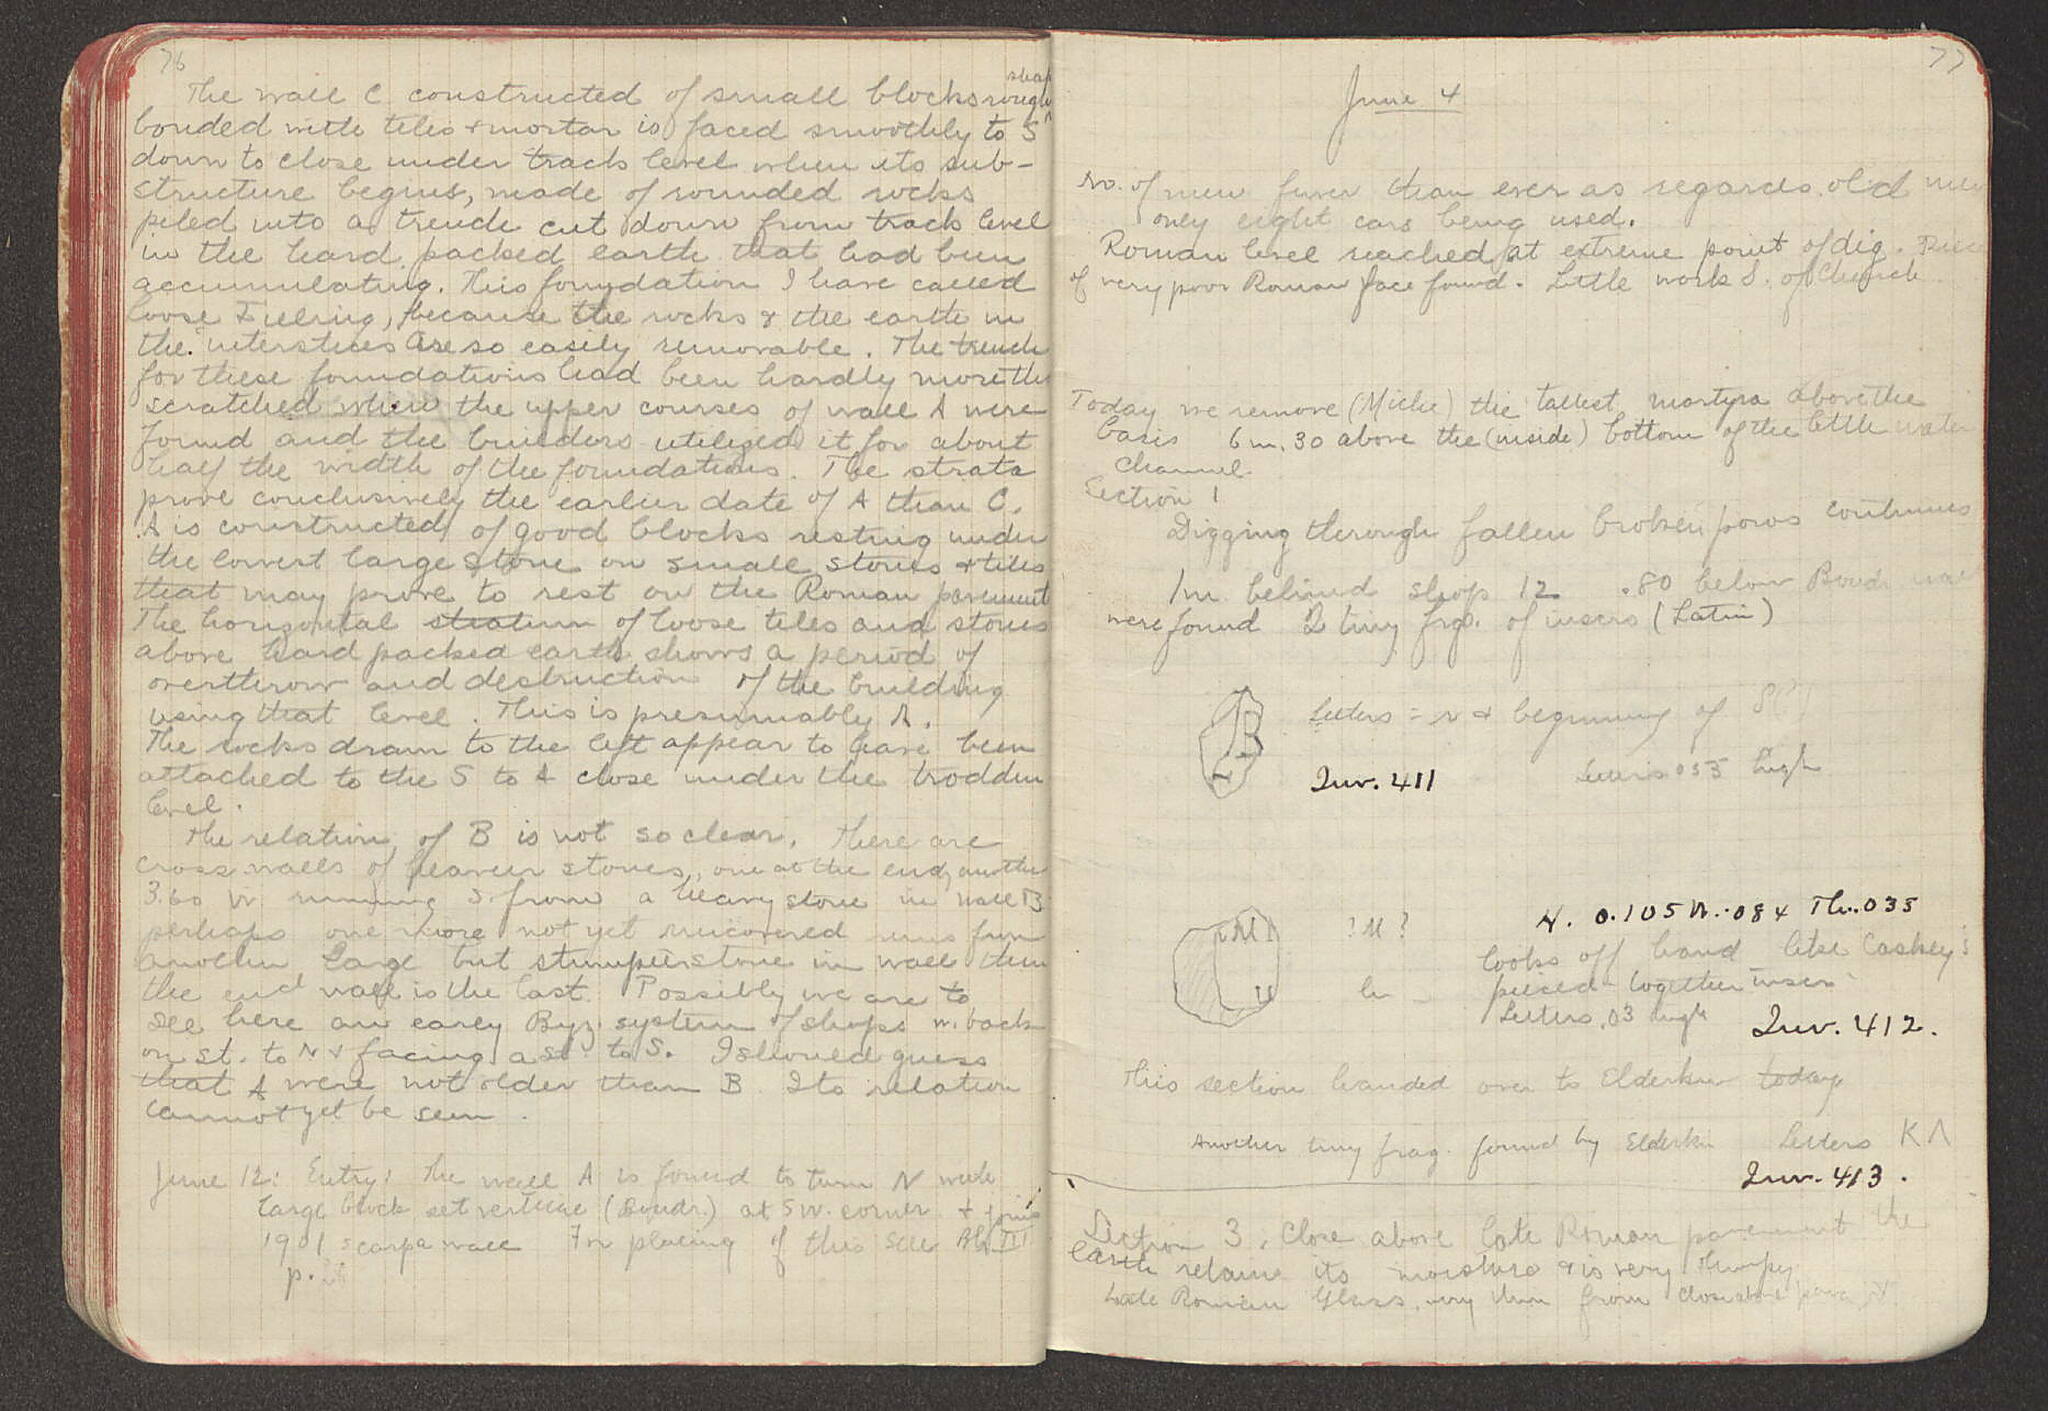 76
The wall C constructed of small blocks rough
bonded with tiles + mortar is faced smoothly to S
down to close under track level when its sub-
structure begins, made of rounded rocks
piled into a trench cut down from track level
in the hard packed earth that had been
accumulating. This foundation I have called
Loose Filling, because the rocks & the earth in
the interstices are so easily removable. The trench
for these foundations had been hardly more th
scratched when the upper courses of wall A were
found and the builders utilized it for about
half the width of the foundations. The strata
prove conclusively the earlier date of A than C.
A is constructed of good blocks resting under
the lowest large stone on small stones + tiles
that may prove to rest on the Roman pavement
The horizontal stratum of loose tiles and stones
above hard packed earth shows a period of
overthrow and destruction of the building
using that level. This is presumably A.
The rocks drawn to the left appear to have been
attached to the S to A close under the trodden
level.
The relation of B is not so clear. There are
cross walls of heavier stones, one at the end, another
3.60 W running S from a heavy stone in wall B
perhaps one more not yet uncovered runs from
another large but stone in wall then
the end wall is the last. Possibly we are to
see here an early Byz. system of shops w. back
on st. to N + facing a st. to S. I should guess
that A were not older than B. Its relation
cannot yet be seen.
June 12: Entry: The wall A is found to turn N with
large block set vertical (Boudr.) at SW. corner + joins
1901 scarpa wall For placing of this see Bk III
p.
77
June 4
No. of men fewer than ever as regards old men
only eight cars being used.
Roman level reached at extreme point of dig. Piece
of very poor Roman face found. Little work S. of Church
Today we remove (Miche) the tallest martyra above the
basis 6 m. 30 above the (inside) bottom of the little water
channel.
Section 1
Digging through fallen broken poros continues
In behind shop 12 .80 below Boudr wall
were found 2 tiny frgs. of inscrs (Latin)
Letters = r + beginning of
Inv. 411
Letters .055 high
H. 0.105 W. .084 Th. .035
! M ?
looks off hand like Caskey's
pieced-together inscr
Letters .03 high
Inv. 412.
This section handed over to Elderkin today
Another tiny frag. found by Elderkin Letters K Λ
Inv. 413.
Section 3. Close above late Roman pavement the
earth retains its moisture & is very
Late Roman Glass, very thin from close above